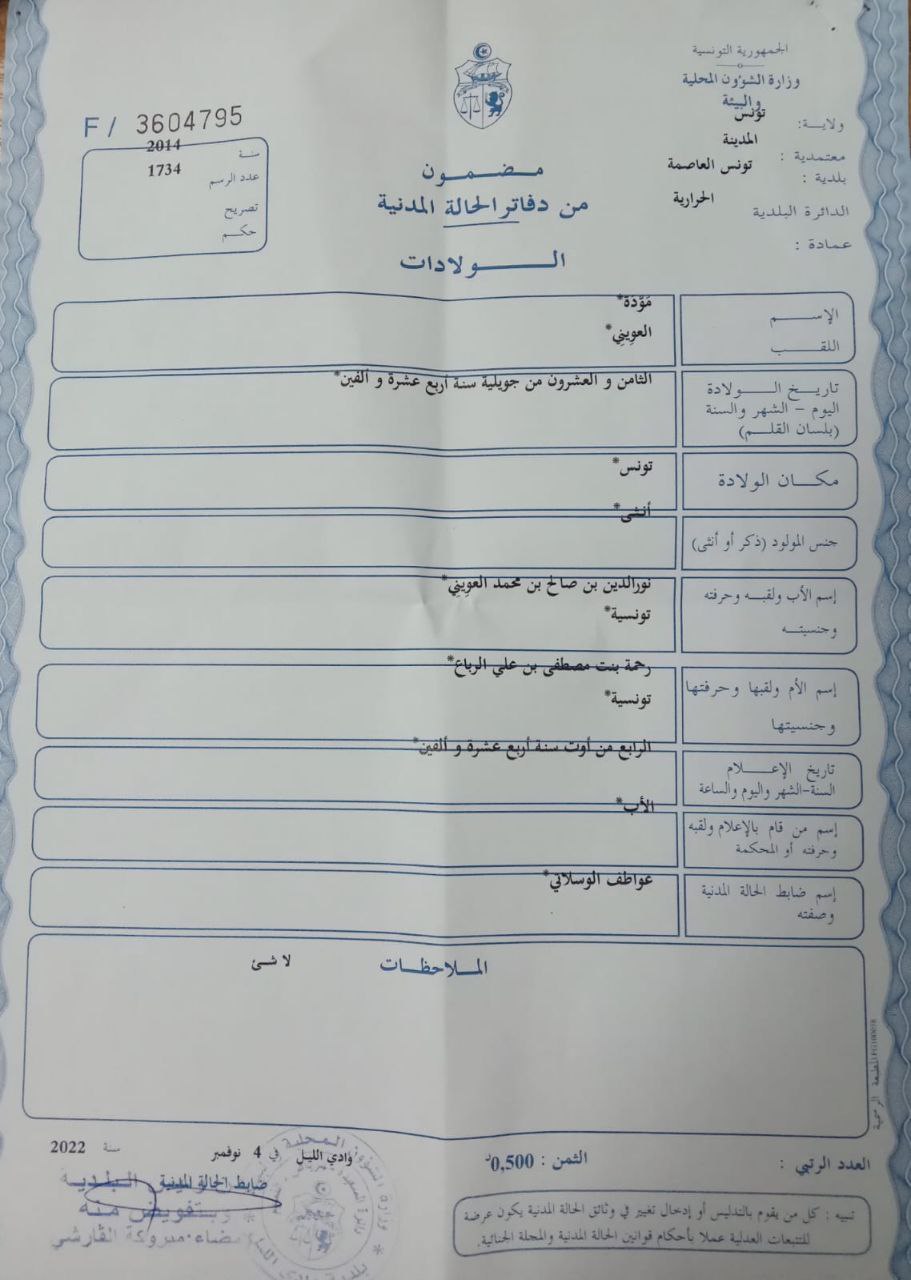 الجمهورية التونسية
وزارة الشؤون المحلية
والبيئة
ولاية: تونس
معتمدية : المدينة
بلدية : تونس العاصمة
الدائرة البلدية الحرارية
عمادة :
F/ 3604795
سنة 2014
عدد الرسم 1734
تصريح
حكم
مضمون
من دفاتر الحالة المدنية
الولادات
الإسم مَوَدّة*
اللقب العويني*
تاريخ الولادة الثامن و العشرون من جويلية سنة أربع عشرة و ألفين*
اليوم - الشهر والسنة
(بلسان القلم)
مكان الولادة تونس*
جنس المولود (ذكر أو أنثى) أنثى*
إسم الأب ولقبه وحرفته نورالدين بن صالح بن محمد العويني*
وجنسيته تونسية*
إسم الأم ولقبها وحرفتها رحمة بنت مصطفى بن علي الرباع*
وجنسيتها تونسية*
تاريخ الإعلام الرابع من أوت سنة أربع عشرة و ألفين*
السنة-الشهر واليوم والساعة
إسم من قام بالإعلام ولقبه الأب*
وحرفته أو المحكمة
إسم ضابط الحالة المدنية عواطف الوسلاتي*
وصفته
الملاحظات لا شئ
المطبعة الرسمية
العدد الرتبي :
الثمن : 0,500د
وادي الليل في 4 نوفمبر سنة 2022
ضابط الحالة المدنية
البلدية
وبتفويض منه
مضاء: مبروكة القارشي
تنبيه : كل من يقوم بالتدليس أو إدخال تغيير في وثائق الحالة المدنية يكون عرضة
للتتبعات العدلية عملا بأحكام قوانين الحالة المدنية والمجلة الجنائية.